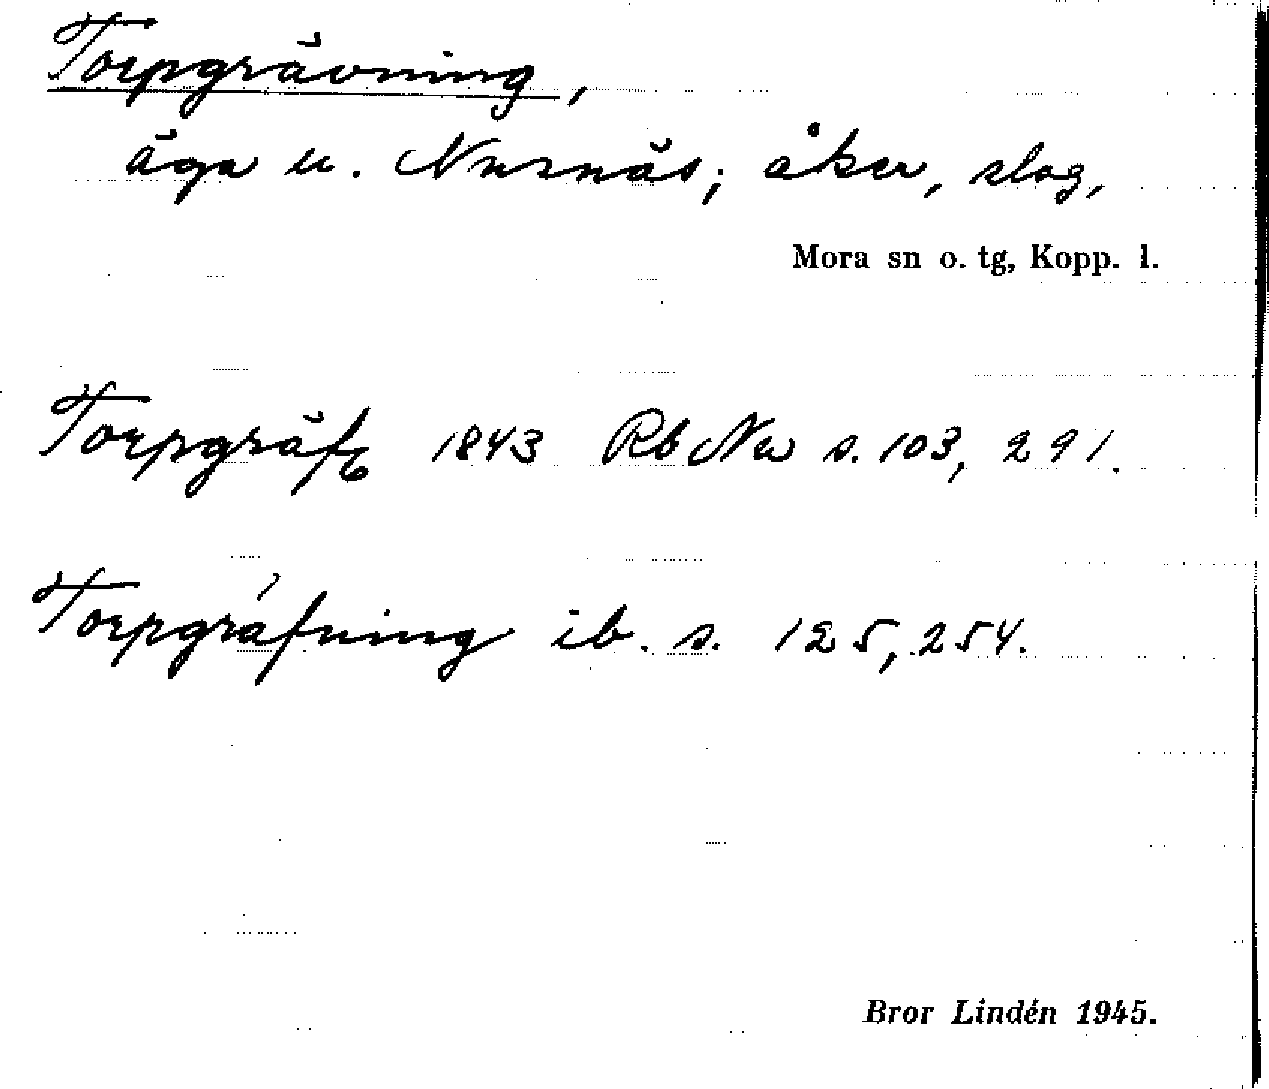 Torpgrävning,
äga u. Nusnäs; åker, slog,
Mora sn o. tg, Kopp. l.
Torpgräf 1843 Rb Nw s. 103, 291.
Torpgräfning ib. s. 125, 254.
Bror Lindén 1945.